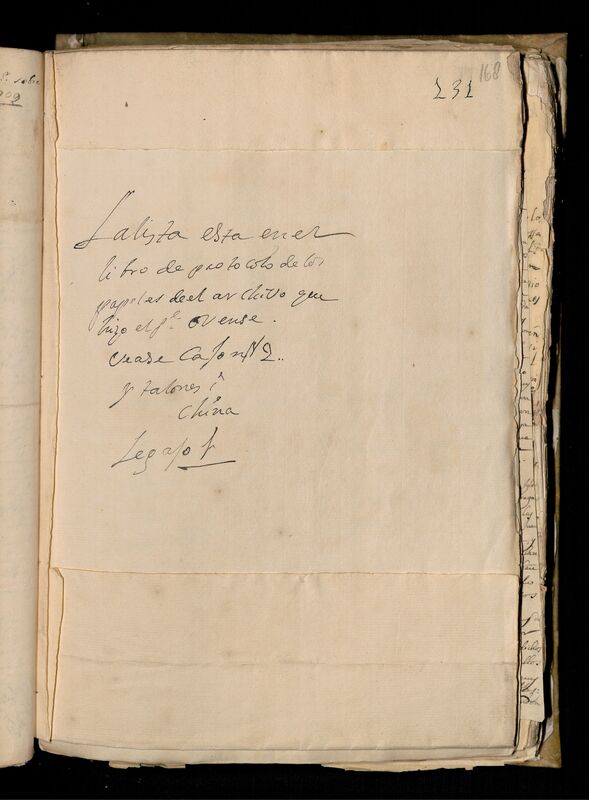 168
231
La lista esta en el
libro de protocolo de los
papeles deel archivo que
hizo el pe orense.
vease Cajon N 2..
y
China
Legajo 1
sobre